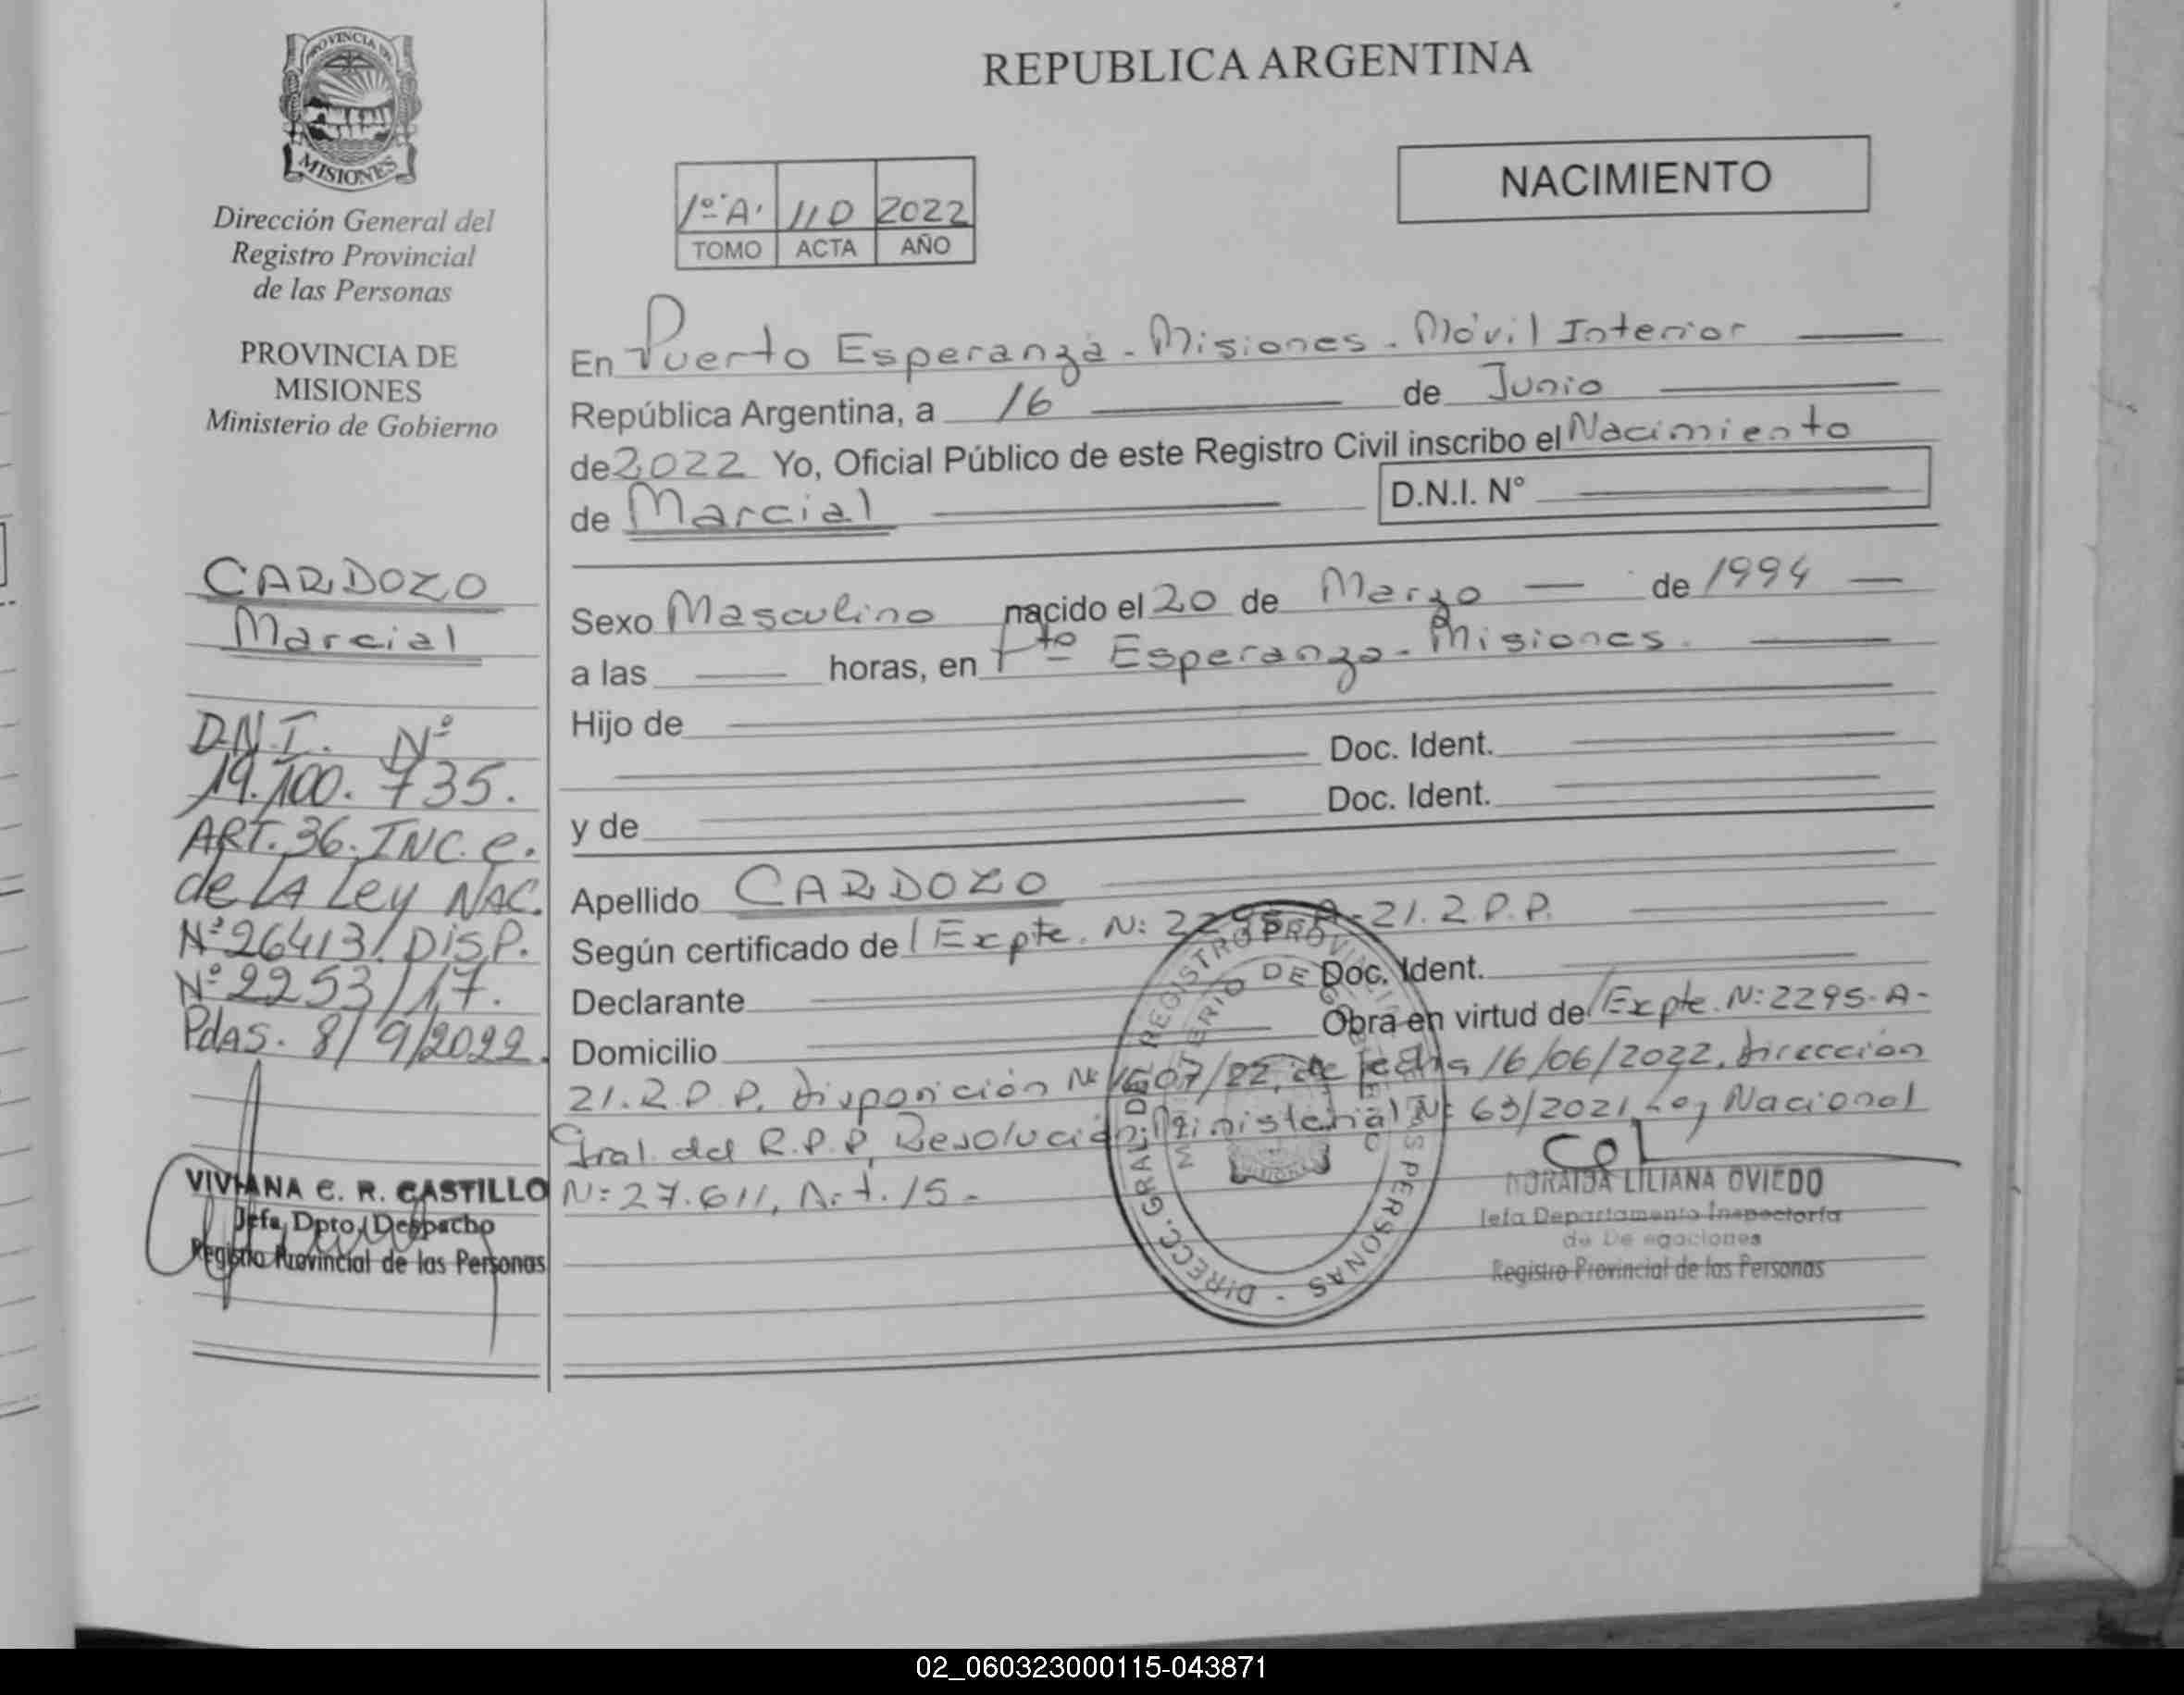 PROVINCIA DE
MISIONES
Dirección General del
Registro Provincial
de las Personas
PROVINCIA DE
MISIONES
Ministerio de Gobierno
CARDOZO
Marcial
D.N.I. Nº
19.100.735.
ART. 36. INC. e.
de LA Ley NAC.
Nº 26413/. DISP.
Nº 2253/17.
PdAS. 8/9/2022.
VIVIANA E. R. CASTILLO
Jefa Dpto. Despacho
Registro Provincial de las Personas
REPUBLICA ARGENTINA
NACIMIENTO
1º "A" 110 2022
TOMO ACTA AÑO
En Puerto Esperanza - Misiones - Móvil Interior
República Argentina, a 16 de Junio
de 2022 Yo, Oficial Público de este Registro Civil inscribo el Nacimiento
de Marcial D.N.I. N°
Sexo Masculino nacido el 20 de Marzo de 1994
a las horas, en Pto Esperanza - Misiones.
Hijo de
Doc. Ident.
y de Doc. Ident.
Apellido CARDOZO
Según certificado de / Expte. N: 2295-A-21.R.P.P.
Declarante Doc. Ident.
Domicilio Obra en virtud de / Expte. N: 2295-A-
21.R.P.P. Disposición Nº 1607/22, de fecha 16/06/2022. Dirección
Gral. del R.P.P, Resolución Ministerial N: 63/2021, Ley Nacional
N: 27.611, Art. 15 -
DIRECC. GRAL. DE REGISTRO PROVINCIAL DE LAS PERSONAS
MINISTERIO DE GOBIERNO
NORAIDA LILIANA OVIEDO
Jefa Departamento Inspectoría
de Delegaciones
Registro Provincial de las Personas
02_060323000115-043871